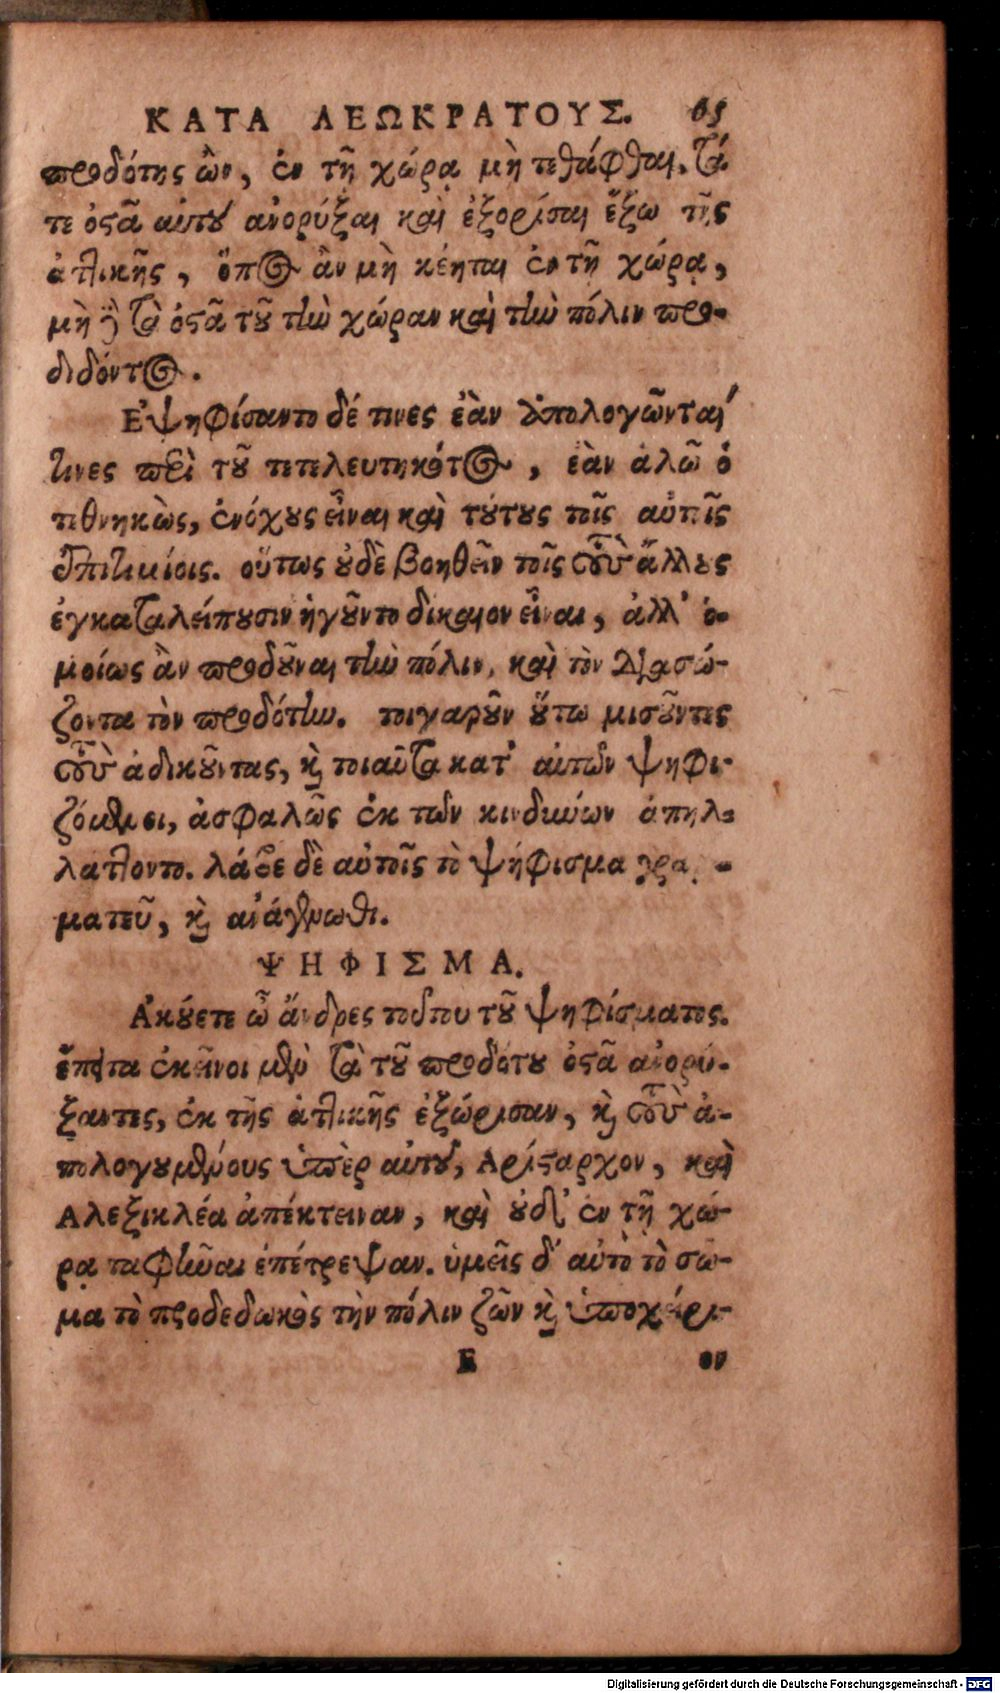 ΚΑΤΑ ΛΕΩΚΡΑΤΟΥΣ. 65
προδότης ὢν, ἐν τῇ χώρᾳ μὴ τεθάφθαι, τά
τε ὀστᾶ αὐτοῦ ἀνορύξαι καὶ ἐξορίσαι ἔξω τῆς
ἀττικῆς, ὅπως ἂν μὴ κέηται ἐν τῇ χώρᾳ,
μὴ δὲ τὰ ὀστᾶ τοῦ τὴν χώραν καὶ τὴν πόλιν προ-
διδόντος.
Εψηφίσαντο δέ τινες ἐὰν ἀπολογῶνται
τινες περὶ τοῦ τετελευτηκότος, ἐὰν ἁλῶ ὁ
τεθνηκὼς, ἐνόχους εἶναι καὶ τούτους τοῖς αὐτοῖς
ἐπιτιμίοις. οὕτως οὐδὲ βοηθεῖν τοῖς τοὺς ἄλλους
ἐγκαταλείπουσιν ἡγοῦντο δίκαιον εἶναι, ἀλλ' ὁ-
μοίως ἂν προδοῦναι τὴν πόλιν, καὶ τὸν διασώ-
ζοντα τὸν προδότην. τοιγαροῦν οὕτω μισοῦντες
τοὺς ἀδικοῦντας, καὶ τοιαῦτα κατ' αὐτῶν ψηφι-
ζόμενοι, ἀσφαλῶς ἐκ τῶν κινδύνων ἀπηλ-
λάττοντο. λάβε δὲ αὐτοῖς τὸ ψήφισμα
ματεῦ, καὶ ἀνάγνωθι.
ΨΗΦΙΣΜΑ.
Ἀκούετε ὦ ἄνδρες τούτου τοῦ ψηφίσματος.
ἔπειτα ἐκεῖνοι μὲν τὰ τοῦ προδότου ὀστᾶ ἀνορύ-
ξαντες, ἐκ τῆς ἀττικῆς ἐξώρισαν, καὶ τοὺς ἀ-
πολογουμένους ὑπὲρ αὐτοῦ, Αρίσταρχον, καὶ
Αλεξικλέα ἀπέκτειναν, καὶ οὐδ' ἐν τῇ χώ-
ρᾳ ταφῆναι ἐπέτρεψαν. ὑμεῖς δ' αὐτὸ τὸ σῶ-
μα τὸ προδεδωκὸς τὴν πόλιν ζῶν καὶ ὑποχείρι-
E ον
Digitalisierung gefördert durch die Deutsche Forschungsgemeinschaft - DFG